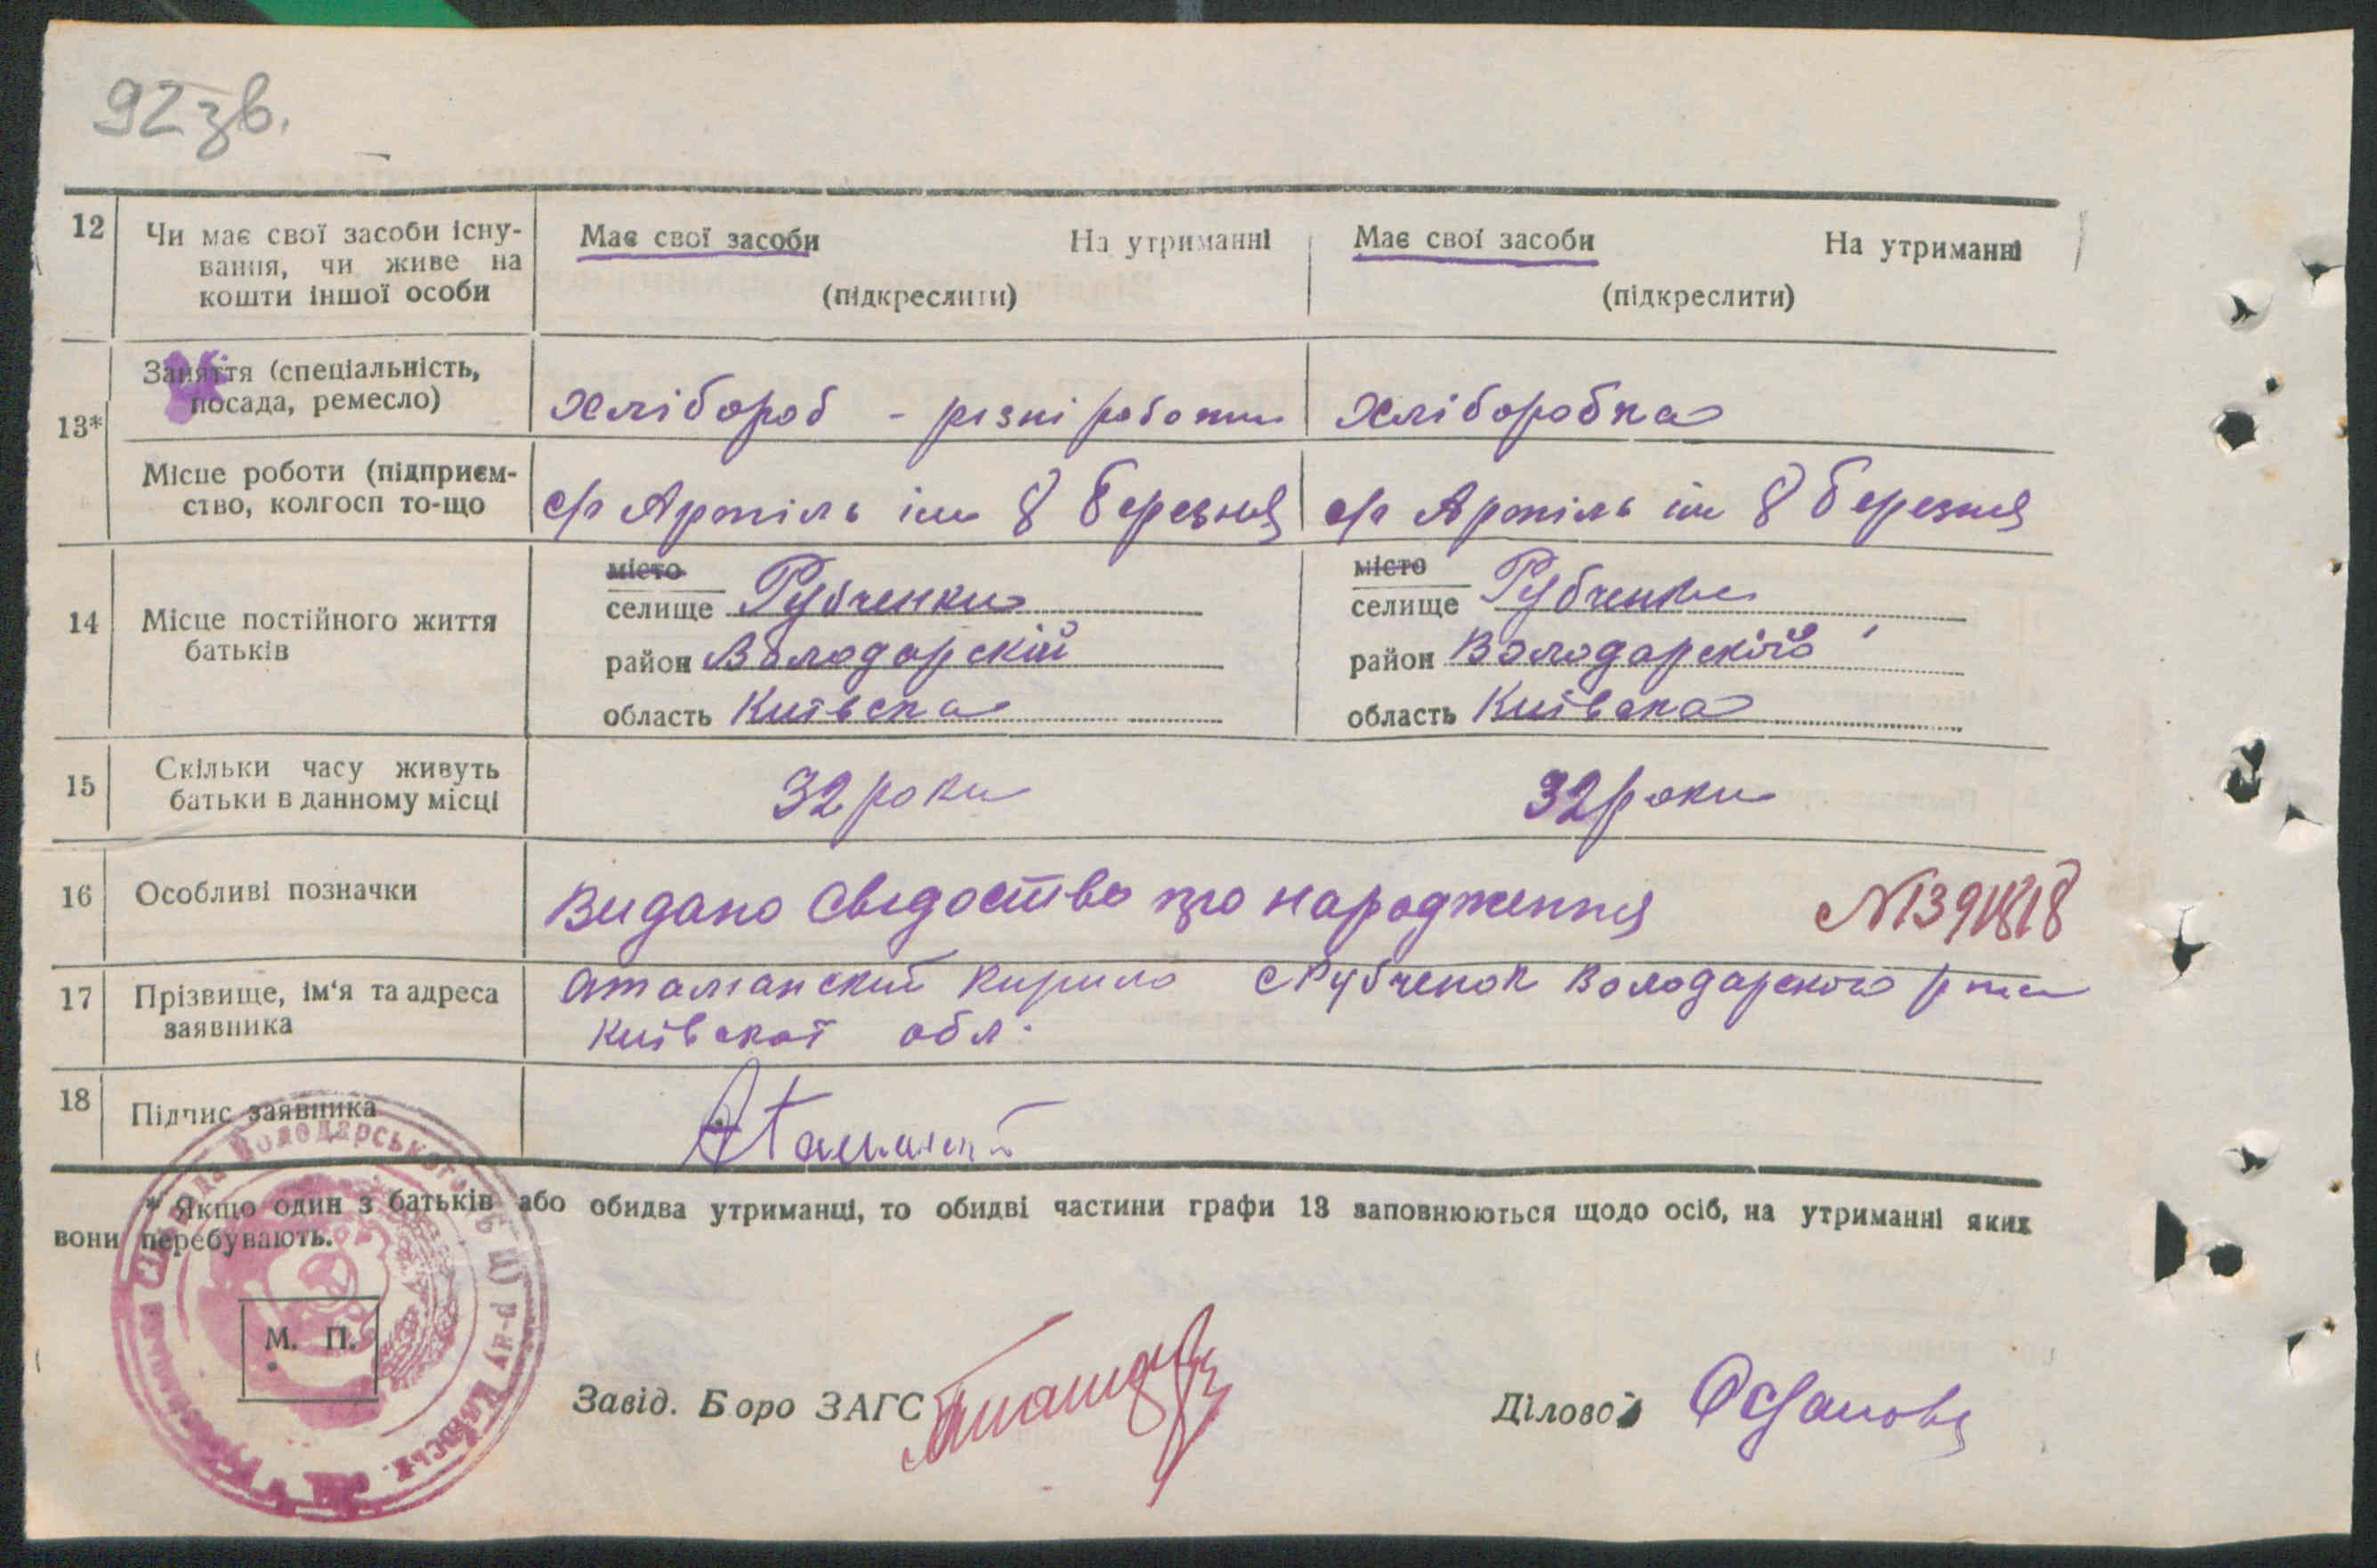 92 зв.
12 Чи має свої засоби існу-
вання, чи живе на
кошти іншої особи
Має свої засоби На утриманні
(підкреслити)
Має свої засоби На утриманні
(підкреслити)
13*
Заняття (спеціальність,
посада, ремесло)
Хлібороб - різні роботи
Хліборобка
Місце роботи (підприєм-
ство, колгосп то-що
с/г Артіль ім 8 березня
с/г Артіль ім 8 березня
14 Місце постійного життя
батьків
місто
селище Рубченки
район Володарскій
область Київска
місто
селище Рубченки
район Володарскій
область Київска
15 Скільки часу живуть
батьки в данному місці
32 роки
32 роки
16 Особливі позначки
Видано Свідоство про народження №1391818
17 Прізвище, ім'я та адреса
заявника
Атаманский Кирило с Рубченок Володарского р
Київскої обл.
18 Підпис заявника
* Якщо один з батьків або обидва утриманці, то обидві частини графи 13 заповнюються щодо осіб, на утриманні яких
вони перебувають.
М. П.
Завід. Боро ЗАГС
Діловод